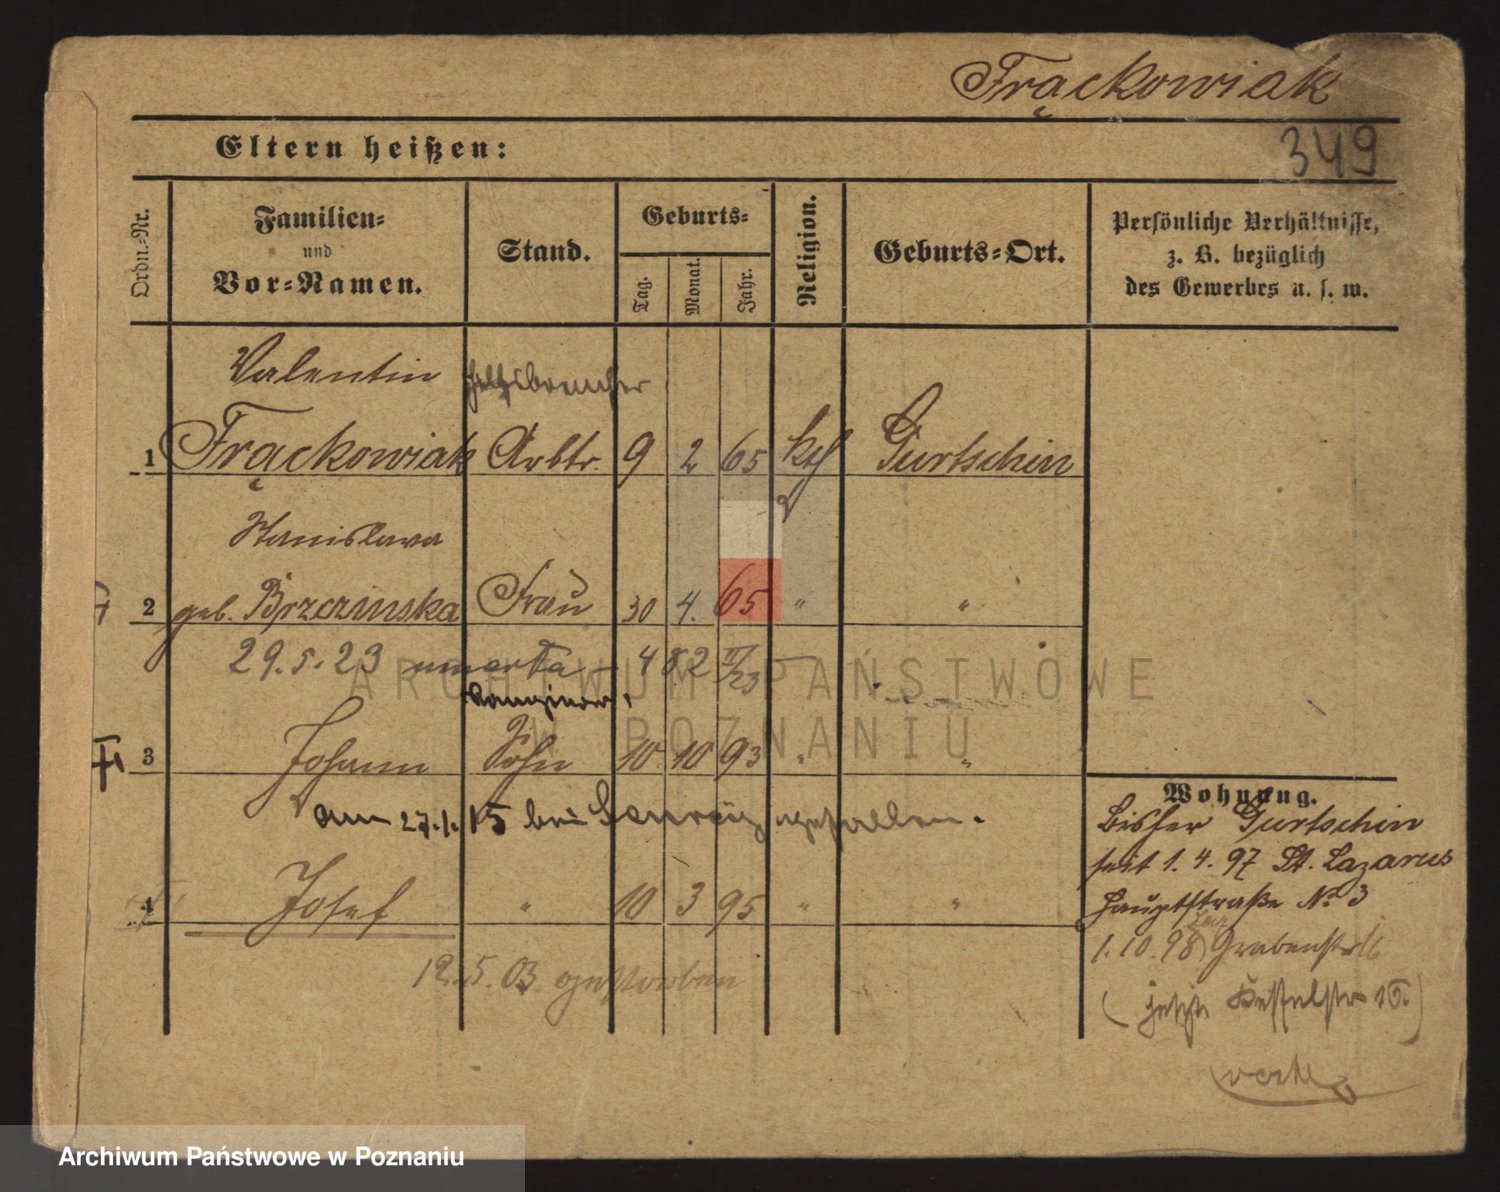 Frąckowiak
Eltern heißen:
349
Ordn.-Nr.
Familien-
und
Vor-Namen.
Stand.
Geburts-
Tag.
Monat.
Jahr.
Religion.
Geburts-Ort.
Persönliche Verhältnisse,
z. B. bezüglich
des Gewerbes u. s. w.
Valentin
1 Frąckowiak Arbtr. 9 2 65 kth Gurtschin
Stanislawa
2 geb. Brzezinska Frau 30 4. 65 " "
29.5.23 umarła 48.2 IV/23
3 Johann Sohn 10 10 93 " "
am 27.1.15 bei gefallen.
4 Josef " 10 3 95 " "
12.5.03 gestorben
Wohnung.
Bisher Gurtschin
seit 1.4.97 St. Lazarus
Hauptstraße No 3
1.10.98 Grabenstr
(jetzt 16.)
ARCHIWUM PAŃSTWOWE
W POZNANIU
Archiwum Państwowe w Poznaniu